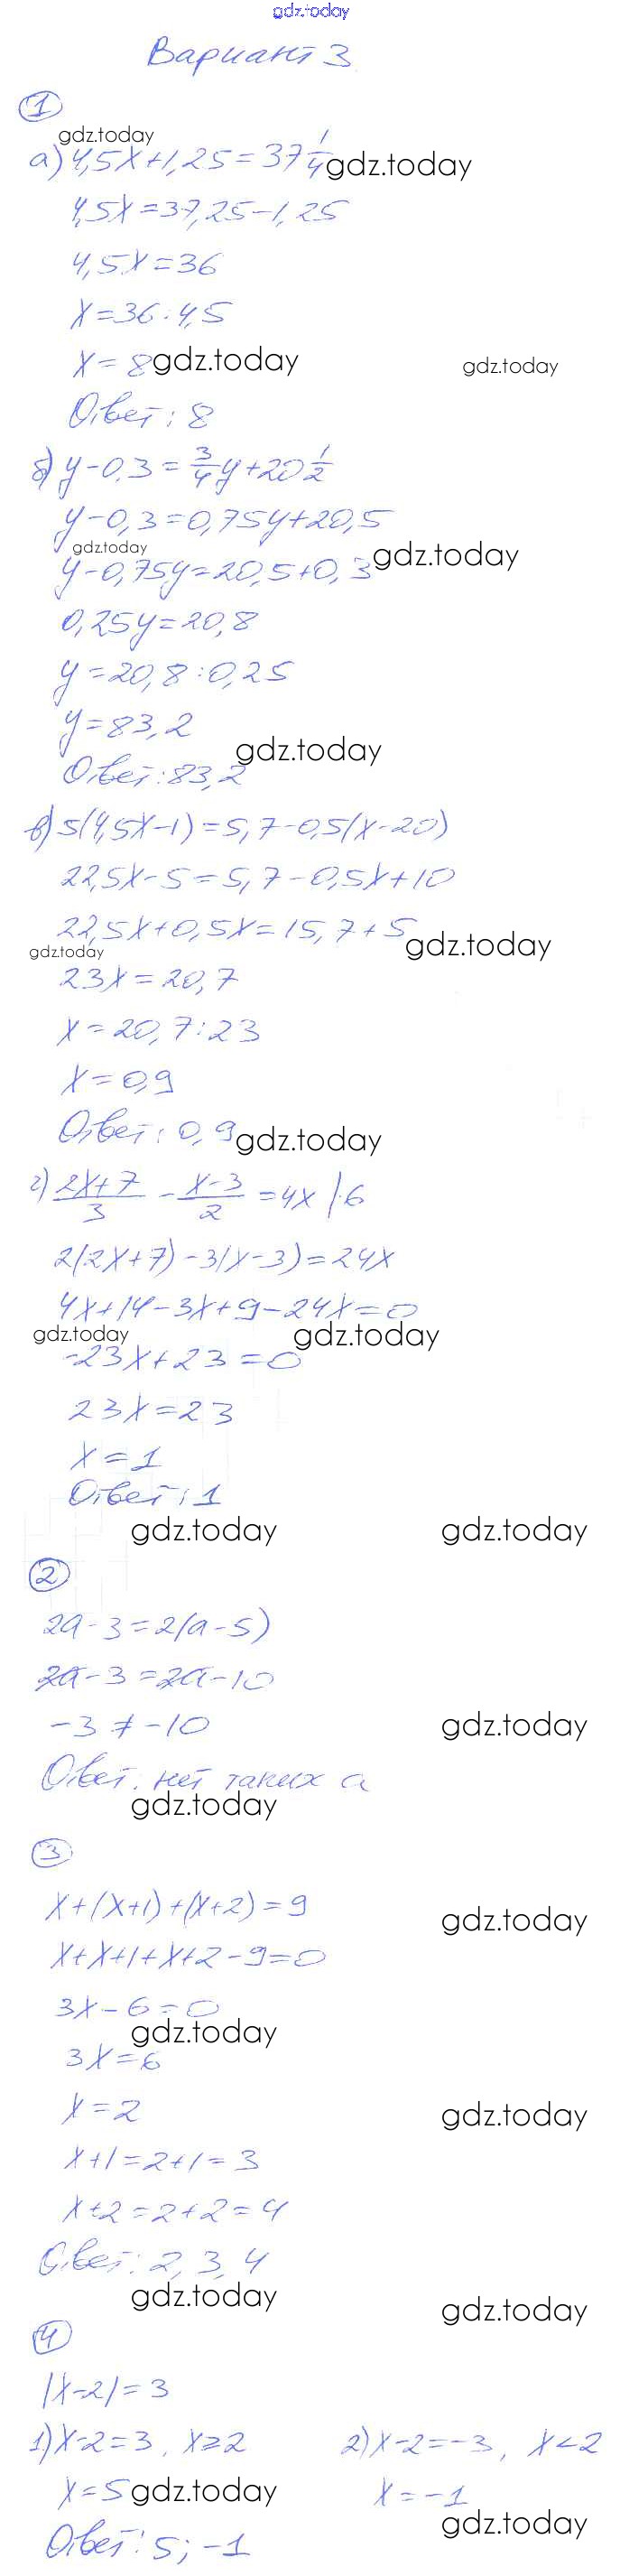 gdz.today
Вариант 3
1
gdz.today
а) 4,5x+1,25=37 1/4 gdz.today
4,5x=37,25-1,25
4,5x=36
x=36:4,5
x=8 gdz.today gdz.today
Ответ: 8
б) y-0,3=3/4y+20 1/2
y-0,3=0,75y+20,5
gdz.today gdz.today
y-0,75y=20,5+0,3
0,25y=20,8
y=20,8:0,25
y=83,2
gdz.today
Ответ: 83,2
в) 5(4,5x-1)=5,7-0,5(x-20)
22,5x-5=5,7-0,5x+10
22,5x+0,5x=15,7+5
gdz.today gdz.today
23x=20,7
x=20,7:23
x=0,9
Ответ: 0,9 gdz.today
г) (2x+7)/3 - (x-3)/2 =4x |·6
2(2x+7)-3(x-3)=24x
4x+14-3x+9-24x=0
gdz.today gdz.today
-23x+23=0
23x=23
x=1
Ответ: 1
gdz.today gdz.today
2
2a-3=2(a-5)
2a-3=2a-10
-3≠-10 gdz.today
Ответ: нет таких a
gdz.today
3
x+(x+1)+(x+2)=9
gdz.today
x+x+1+x+2-9=0
3x-6=0
gdz.today
3x=6
x=2 gdz.today
x+1=2+1=3
x+2=2+2=4
Ответ: 2, 3, 4
gdz.today gdz.today
4
|x-2|=3
1) x-2=3, x≥2 2) x-2=-3, x<2
x=5 gdz.today x=-1
gdz.today
Ответ: 5; -1